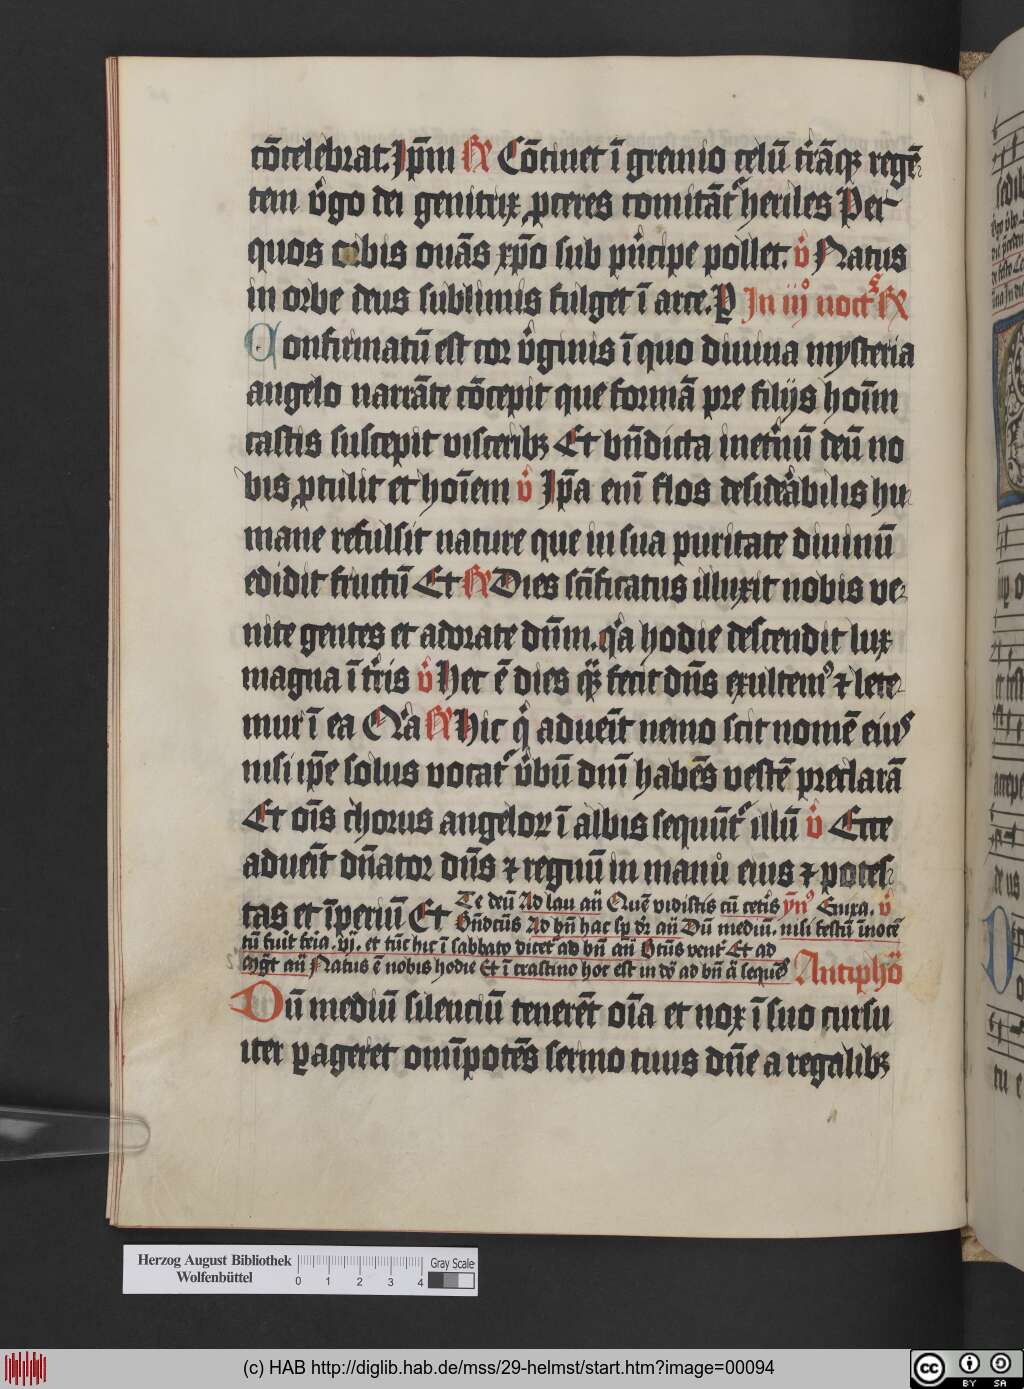 cōcelebrat. Ip̄m R Cōtinet ī gremio celū t̄rāqꝫ regē
tem v̾go dei genitrix ꝓceres comitāt᷑ heriles Per
quos orbis ouās xp̄o sub pͥncipe pollet. v̾ Natus
in orbe deus sublimis fulget ī arce. P In iijͦ noct᷑ R
Confirmatū est cor v̾ginis ī quo diuina mysteria
angelo narrāte cōcepit que formā pre filijs hoīm
castis suscepit visceribꝫ Et bn̄dicta inet̾nū deū no
bis ꝓtulit et hoīem v̾ Ip̄a enī flos desid̾abilis hu
mane refulsit nature que in sua puritate diuinū
edidit fructū Et R Dies sc̄ificatus illuxit nobis ve
nite gentes et adorate dn̄m. qͥa hodie descendit lux
magna ī t̾ris v̾ Hec ē dies quā fecit dn̄s exultemꝰ ⁊ lete
mur ī ea Qͥa R Hic qͥ adueīt nemo scit nomē eiuꝰ
nisi ip̄e solus vocat᷑ v̾bū dn̄i habēs vestē preclarā
Et oīs chorus angeloꝝ ī albis sequūt᷑ illū v̾ Ecce
adueīt dn̄ator dn̄s ⁊ regnū in manu eius ⁊ potes
tas et īperiū Et
Te deū Ad lau an̄ Quē vidistis cū cet̾is ym̄ꝰ Enixa. v̾
Bn̄dc̄us Ad bn̄ hac sp̱ dr̄ an̄ Dū mediū. nisi festū īnocē
tū fuit feia .vj. et tūc hic ī sabbato dicet᷑ ad bn̄ an̄ Bc̄us vent᷑ Et ad
an̄ Natus ē nobis hodie Et ī crastino hoc est in dō ad bn̄ ā sequēs
Antiphō
Dū mediū silenciū tenerēt oīa et nox ī suo cursu
iter ꝑageret omīpotēs sermo tuus dn̄e a regalibꝫ
Herzog August Bibliothek
Wolfenbüttel
0 1 2 3 4
Gray Scale
(c) HAB http://diglib.hab.de/mss/29-helmst/start.htm?image=00094
cc BY SA